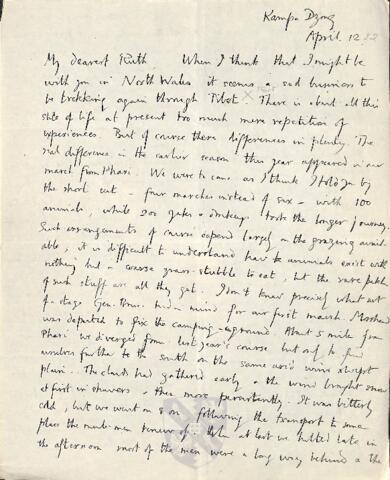 Kampa Dzong
April 12 22
My dearest Ruth When I think that I might be
with you in North Wales it seems a sad business to
be trekking again through Tibet. There is about all this
side of life at present too much mere repetition of
experiences. But of course there differences in plenty. The
real difference in the earlier season this year appeared in our
march from Phari. We were to come as I think I told you by
the short cut – four marches instead of six – with 100
animals, while 200 yaks & donkeys took the longer journey.
Such arrangements of course depend largely on the grazing avail-
able, & it is difficult to understand how the animals exist with
nothing but a coarse grass-stubble to eat, but the rare patches
of such stuff are all they get. I don't know precisely what sort
of stage Gen. Bruce had in mind for our first march. Morshead
was deputed to fix the camping-ground. About 5 mile from
Phari we diverged from last year's course but only to find
ourselves further to the south on the same arid wind swept
plain. The clouds had gathered early & the wind brought snow
at first in showers & then more persistently. It was bitterly
cold, but we went on & on following the transport to some
place the mule-men knew of. When at last we halted late in
the afternoon most of the men were a long way behind & the